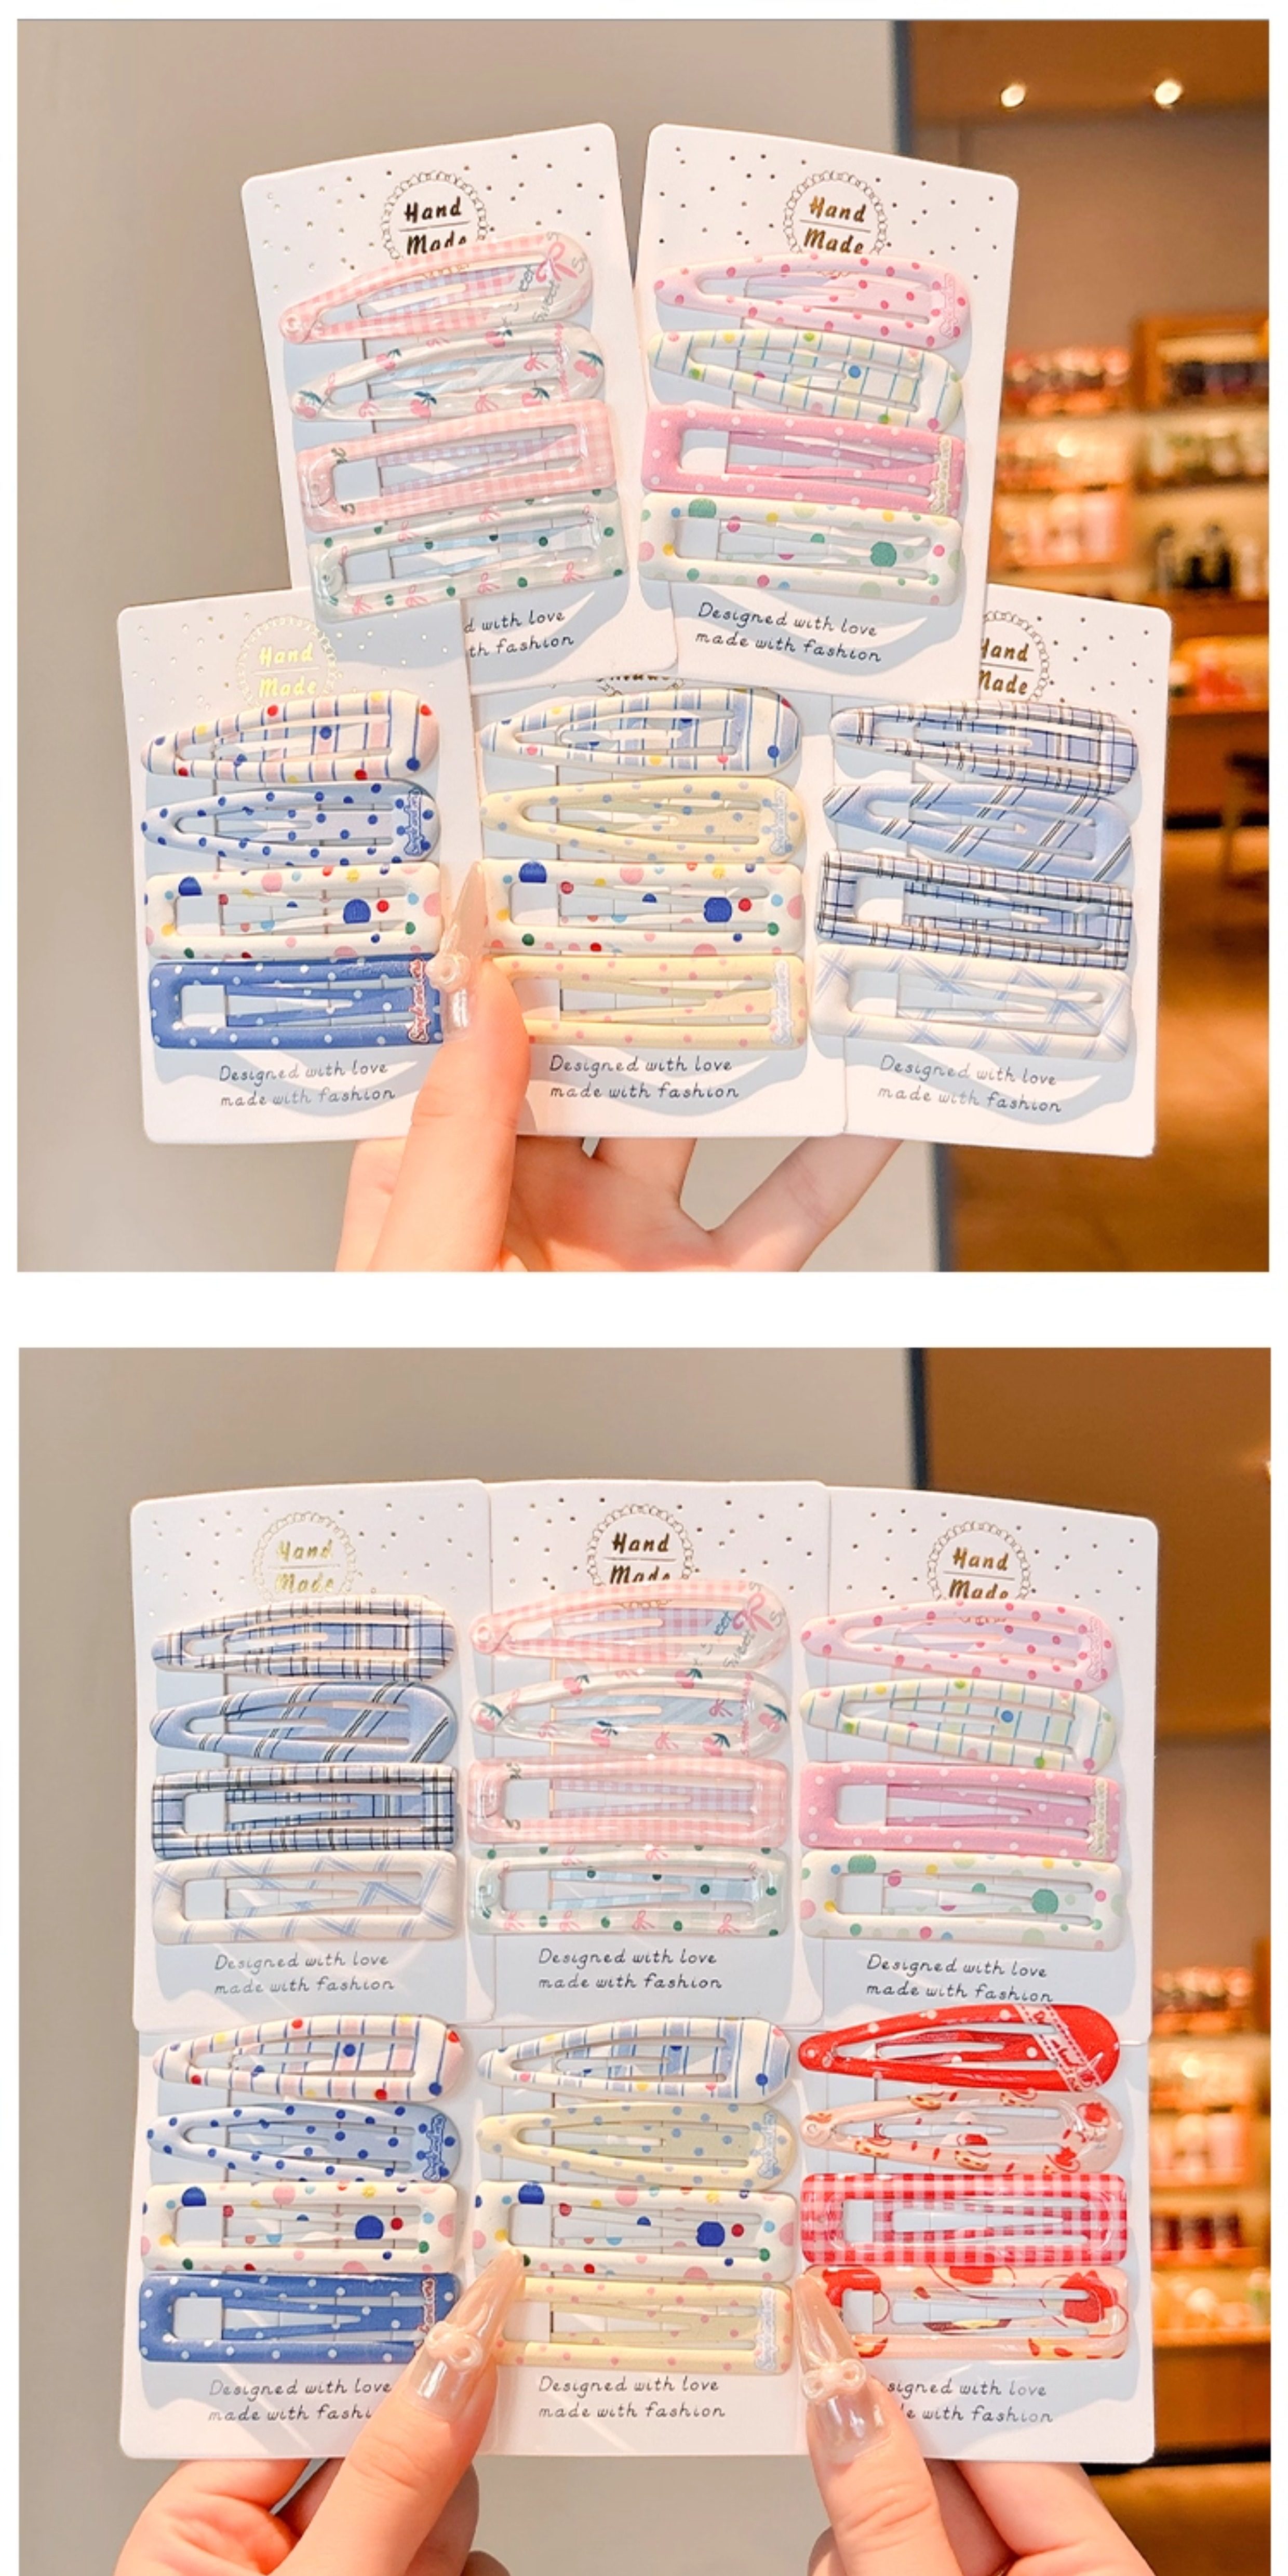 Hand
Made
Hand
Made
d with love
th fashion
Designed with love
made with fashion
Hand
Made
Hand
Made
Designed with love
made with fashion
Designed with love
made with fashion
Designed with love
made with fashion
Hand
Made
Hand
Made
Hand
Made
Sweet
Designed with love
made with fashion
Designed with love
made with fashion
Designed with love
made with fashion
Designed with love
made with fashi
Designed with love
made with fashion
signed with love
e with fashion